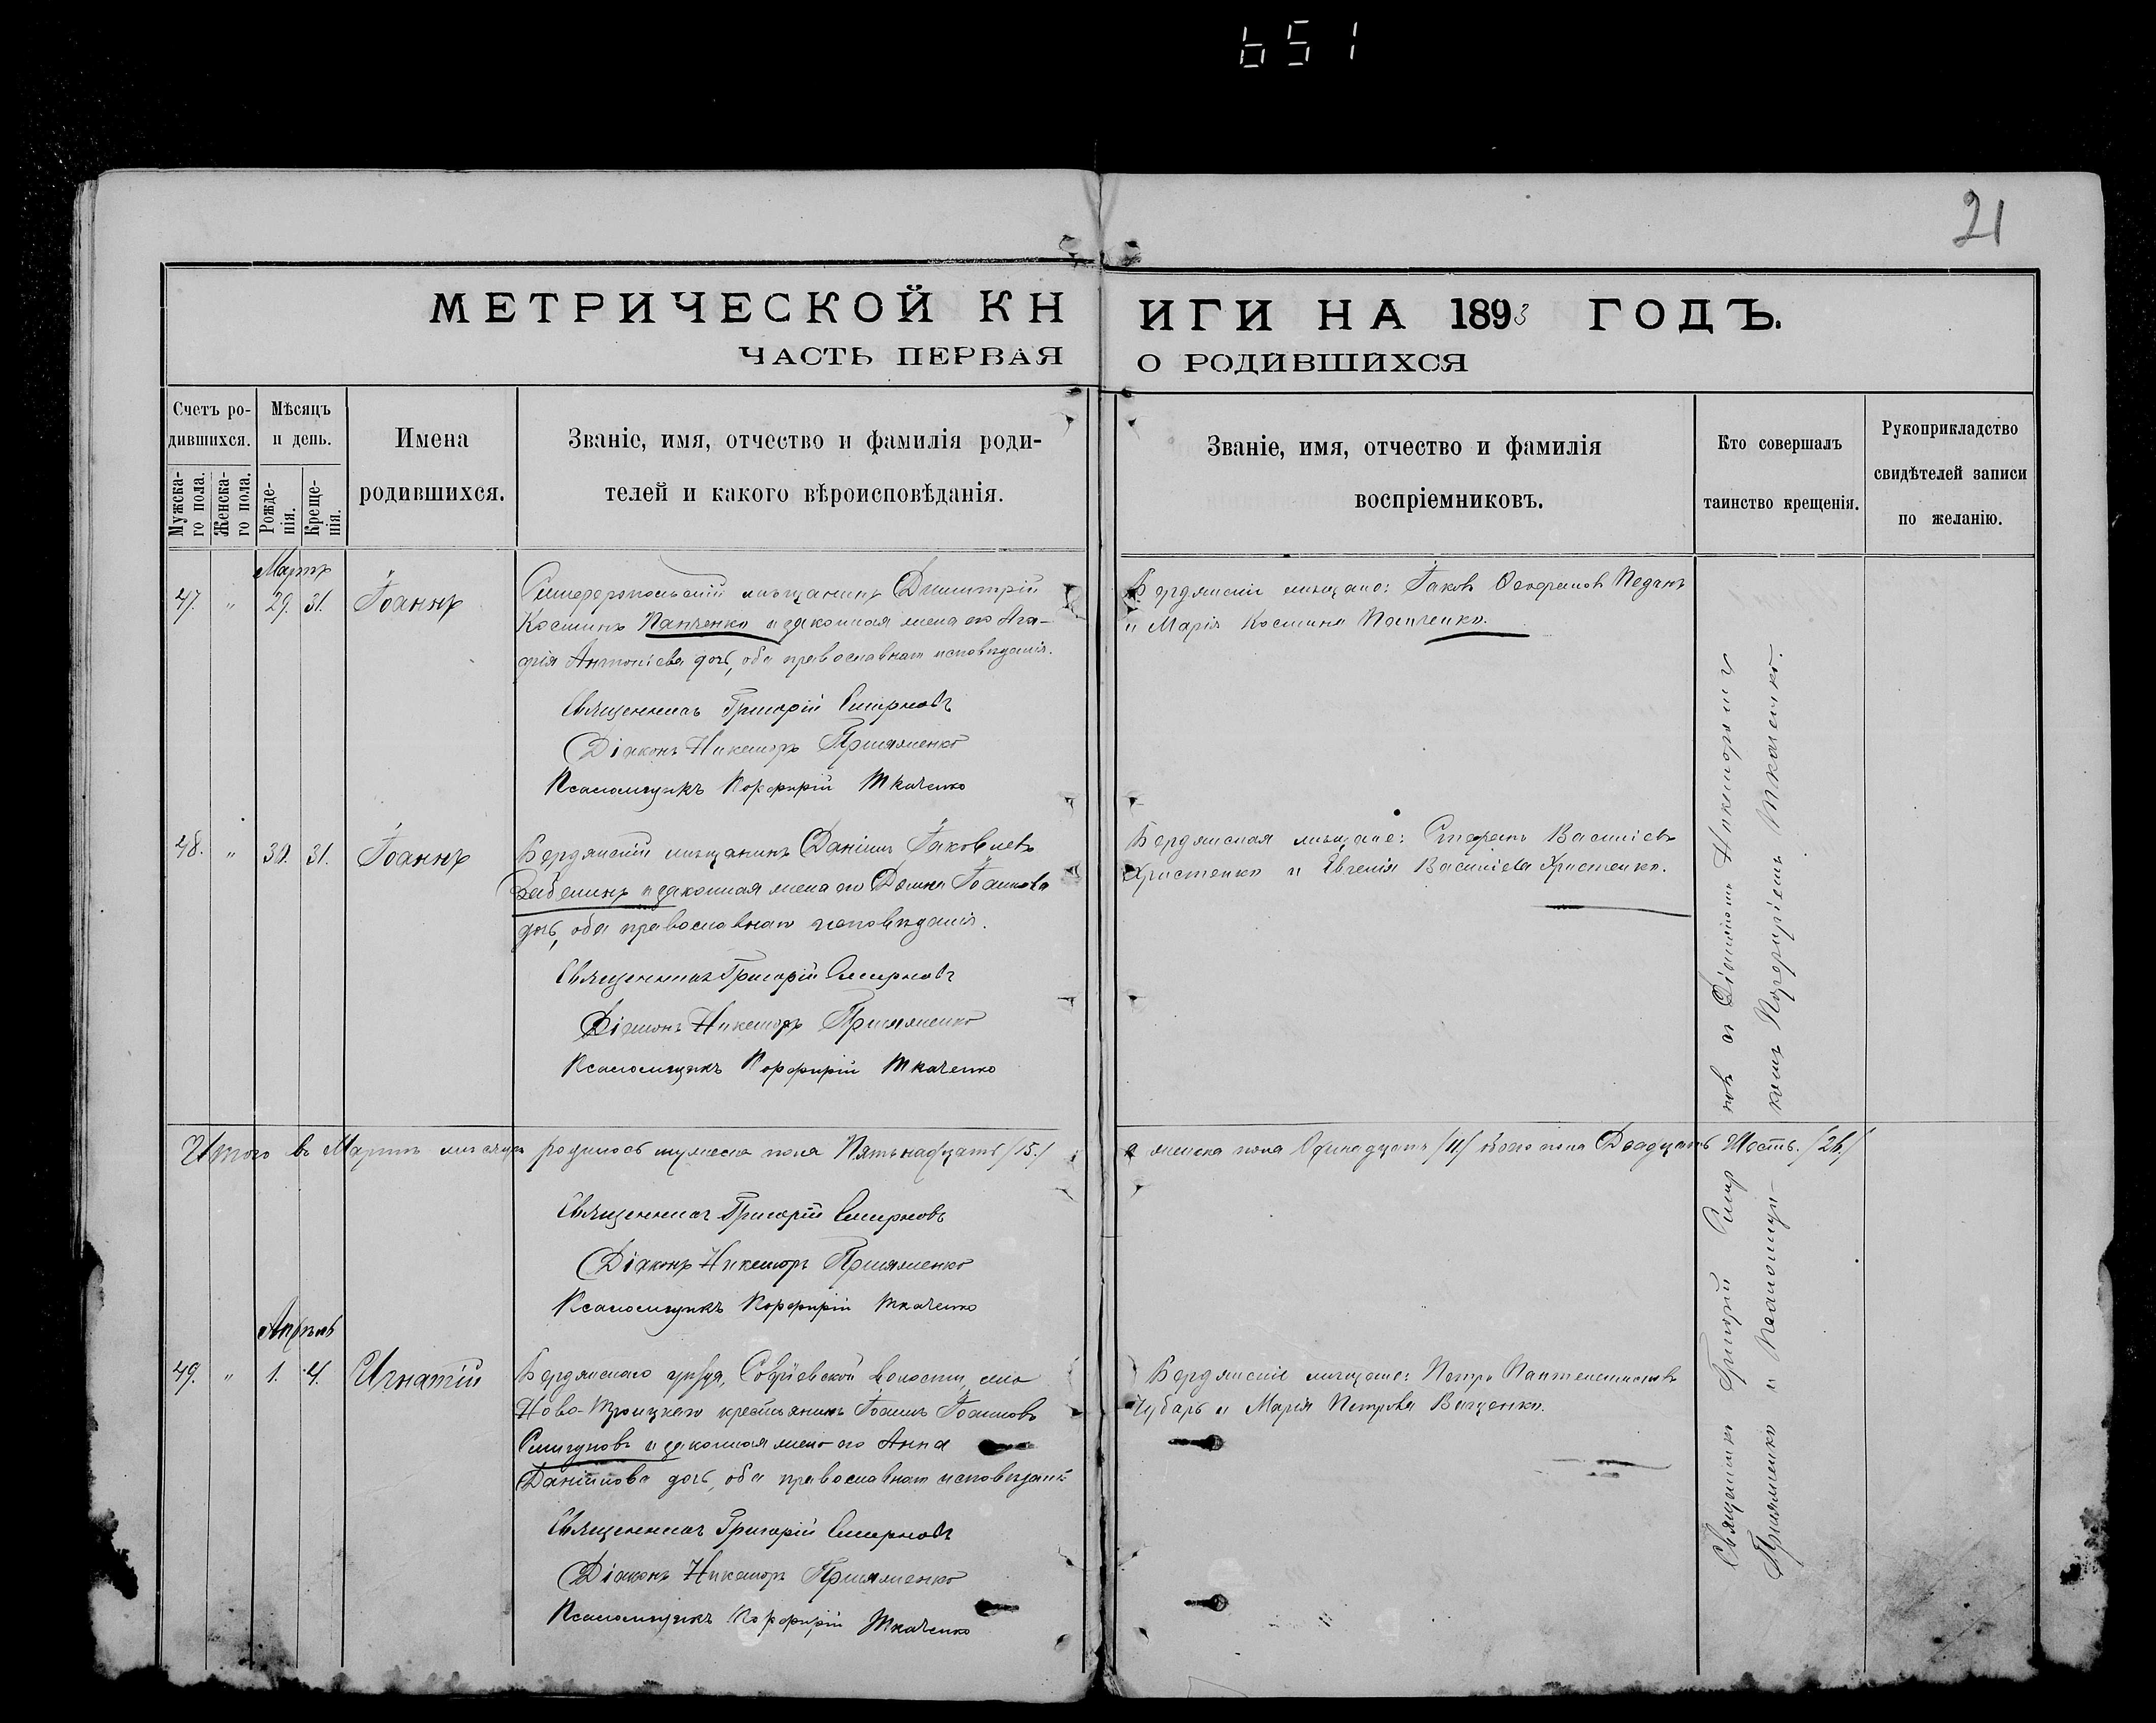 651
21
МЕТРИЧЕСКОЙ КНИГИ НА 1893 ГОДЪ.
ЧАСТЬ ПЕРВАЯ О РОДИВШИХСЯ
Счетъ ро-
дившихся.
Мужска-
го пола.
Женска-
го пола.
Мѣсяцъ
и день.
Рожде-
нія.
Креще-
нія.
Имена
родившихся.
Званіе, имя, отчество и фамилія роди-
телей и какого вѣроисповѣданія.
Званіе, имя, отчество и фамилія
воспріемниковъ.
Кто совершалъ
таинство крещенія.
Рукоприкладство
свидѣтелей записи
по желанію.
Мартъ
47. " 29. 31. Іоаннъ
Симферопольскій мѣщанинъ Димитрій
Косминъ Панченко и законная жена его Ага-
фія Антоніева дочь, оба православнаго исповѣданія.
Священникъ Григорій Смирновъ
Діаконъ Никаноръ
Псаломщикъ Порфирій Ткаченко
Бердянскіе мѣщане: Іаковъ Педанъ
и Марія Космина Панченко.
48. " 30. 31. Іоаннъ
Бердянскій мѣщанинъ Даніилъ Іаковлевъ
и законная жена его Домна Іоаннова
дочь, оба православнаго исповѣданія.
Священникъ Григорій Смирновъ
Діаконъ Никаноръ
Псаломщикъ Порфирій Ткаченко
Бердянская мѣщане: Стефанъ Васильевъ
Христенко и Евгенія Васильева Христенко.
Итого въ Мартѣ мѣсяцѣ родилось мужеска пола Пятьнадцать /15./ а женска пола Одинадцать /11/ обоего пола Двадцать Шесть. /26/
Священникъ Григорій Смирновъ
Діаконъ Никаноръ
Псаломщикъ Порфирій Ткаченко
Апрѣль
49. " 1. 4. Игнатій
Бердянскаго уѣзда, Софіевской волости, села
Ново-Троицкаго крестьянинъ Іоаннъ Іоанновъ
и законная жена его Анна
Даніилова дочь, оба православнаго исповѣданія
Священникъ Григорій Смирновъ
Діаконъ Никаноръ
Псаломщикъ Порфирій Ткаченко
Бердянскіе мѣщане: Петръ Пантелеимоновъ
Чубарь и Марія Петрова Ващенко.
Священникъ Григорій Смирновъ съ Діакономъ Никаноромъ
и Псаломщи-
комъ Порфиріемъ Ткаченко.